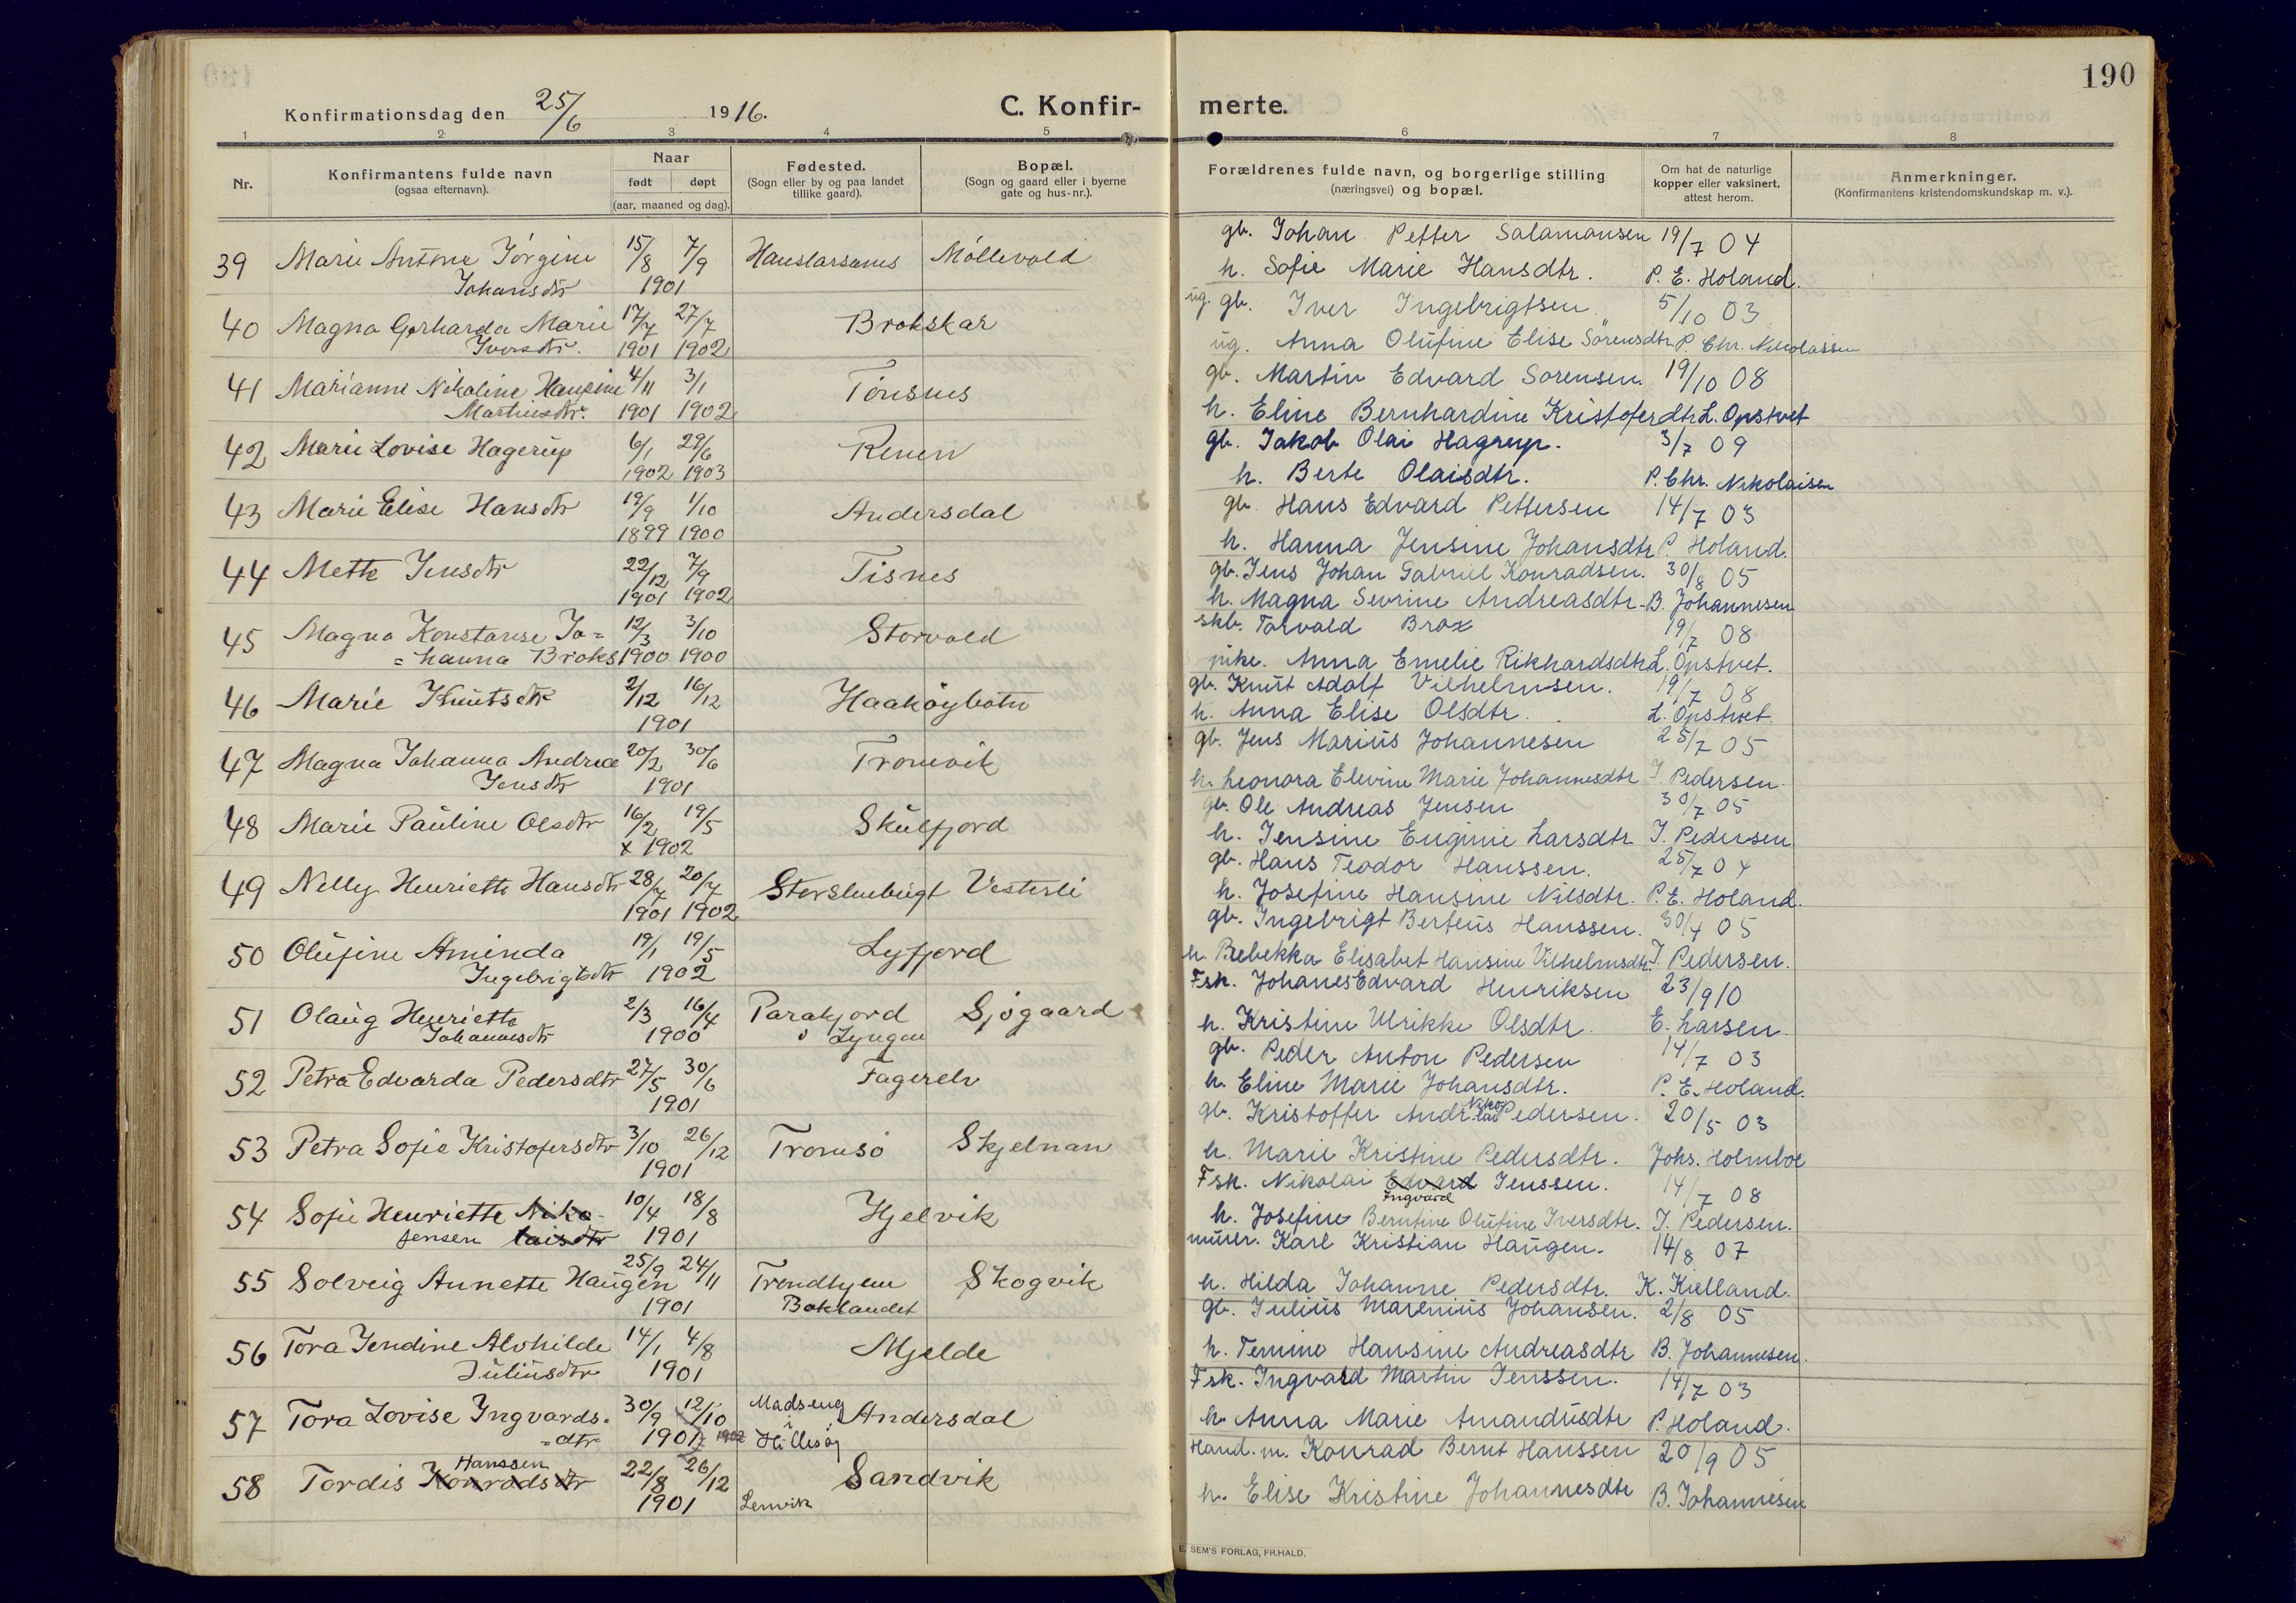 190
Konfirmationsdag den 25/6 1916.
C. Konfir-
merte.
1 2 3 4 5 6 7 8
Nr.
Konfirmantens fulde navn
(ogsaa efternavn).
Naar
født døpt
(aar, maaned og dag).
Fødested.
(Sogn eller by og paa landet
tillike gaard).
Bopæl.
(Sogn og gaard eller i byerne
gate og hus-nr.).
Forældrenes fulde navn, og borgerlige stilling
(næringsvei) og bopæl.
Om hat de naturlige
kopper eller vaksinert,
attest herom.
Anmerkninger.
(Konfirmantens kristendomskundskap m. v.).
39 Marie Antone Jörgine 15/8 7/9 Møllevold
Johansdtr 1901
gb. Johan Petter Salamonsen 19/7 04
h. Sofie Marie Hansdtr. P. E. Holand.
40 Magna Gerharda Marie 17/7 27/7 Brokskar
Iversdtr. 1901 1902
ug. gb. Iver Ingebrigtsen 5/10 03
ug. Anna Olufine Elise Sörensdtr P. Chr. Nikolaissen
41 Marianne Nikoline Hansine 4/11 3/1 Tönsnes
Martinsdtr. 1901 1902
gb. Martin Edvard Sorensen. 19/10 08
h. Eline Bernhardine Kristoferdtr L. Opstvet
42 Marie Lovise Hagerup 6/1 29/6
1902 1903
gb. Jakob Olai Hagrup. 3/7 09
h. Berte Olaisdtr. P. Chr. Nikolaisen
43 Marie Elise Hansdtr 19/9 1/10 Andersdal
1899 1900
gb. Hans Edvard Pettersen 14/7 03
h. Hanna Jensine Johansdtr P. Holand.
44 Mette Jensdtr 22/12 7/9 Tisnes
1901 1902
gb. Jens Johan Gabriel Konradsen. 30/8 05
h. Magna Sevrine Andreasdtr. B. Johannesen
45 Magna Konstanse Jo= 12/3 3/10 Storvold
=hanna Broks 1900 1900
skb. Torvald Brox 19/7 08
pike. Anna Emelie Rikhardsdtr L. Opstvet.
46 Marie Knutsdtr 2/12 16/12 Haakøybotn
1901
gb. Knut Adolf Vilhelmsen. 19/7 08
h. Anna Elise Olsdtr. L. Opstvet.
47 Magna Johanna Andrea 20/2 30/6 Tromvik
Jensdtr 1901
gb. Jens Marius Johannesen 25/7 05
h. Leonora Elevine Marie Johannesdtr J. Pedersen.
48 Marie Pauline Olsdtr 16/2 19/5 Skulfjord
x 1902
gb. Ole Andreas Jensen 30/7 05
h. Jensine Euginie Larsdtr J. Pedersen
49 Nelly Henriette Hansdtr 28/7 20/7 Storslenbugt Vesterli
1901 1902
gb. Hans Teodor Hanssen. 25/7 04
h. Josefine Hansine Nilsdtr. P. E. Holand.
50 Olufine Aminda 19/1 19/5 Lyfjord
Ingebrigtsdtr 1902
gb. Ingebrigt Berteus Hanssen. 30/4 05
h. Rebekka Elisabet Hansine Vilhelmsdtr. J. Pedersen.
51 Olaug Henriette 2/3 16/4 Parakjord Sjøgaard
Johannesdtr 1900 i Lyngen
Fsk. Johanes Edvard Henriksen 23/9 10
h. Kristine Ulrikke Olsdtr. E. Larsen.
52 Petra Edvarda Pedersdtr 27/5 30/6 Fagerelv
1901
gb. Peder Anton Pedersen 14/7 03
h. Eline Marie Johansdtr. P. E. Holand.
53 Petra Sofie Kristofersdtr 3/10 26/12 Tromsö Skjelnan
1901
gb. Kristoffer Andr. Nikolai Pedersen. 20/5 03
h. Marie Kristine Pedersdtr. Johs. Holmboe
54 Sofie Henriette Niko- 10/4 18/8 Hjelvik
Jensen laisdtr 1901
Fsk. Nikolai Edvard Jenssen. 14/7 08
Ingvard
h. Josefine Berntine Olufine Iversdtr. J. Pedersen.
55 Solveig Annette Haugen 25/9 24/11 Trondhjem Skogvik
1901 Baklandet
murer. Karl Kristian Haugen. 14/8 07
h. Hilda Johanne Pedersdtr. K. Kielland.
56 Tora Jendine Alvhilde 14/1 4/8 Mjelde
Juliusdtr 1901
gb. Julius Marenius Johansen. 2/8 05
h. Temine Hansine Andreasdtr B. Johannesen.
57 Tora Lovise Ingvards= 30/9 12/10 Madseng Andersdal
=dtr 1901 1902 i Hillesøy
Fsk. Ingvard Martin Jenssen. 14/7 03
h. Anna Marie Amandusdtr P. Holand.
Hanssen
58 Tordis Konradsdtr 22/8 26/12 Sandvik
1901 Lenvik
Hand. m. Konrad Bernt Hanssen 20/9 05
h. Elise Kristine Johannesdtr B. Johannesen
E. SEM'S FORLAG, FR.HALD.